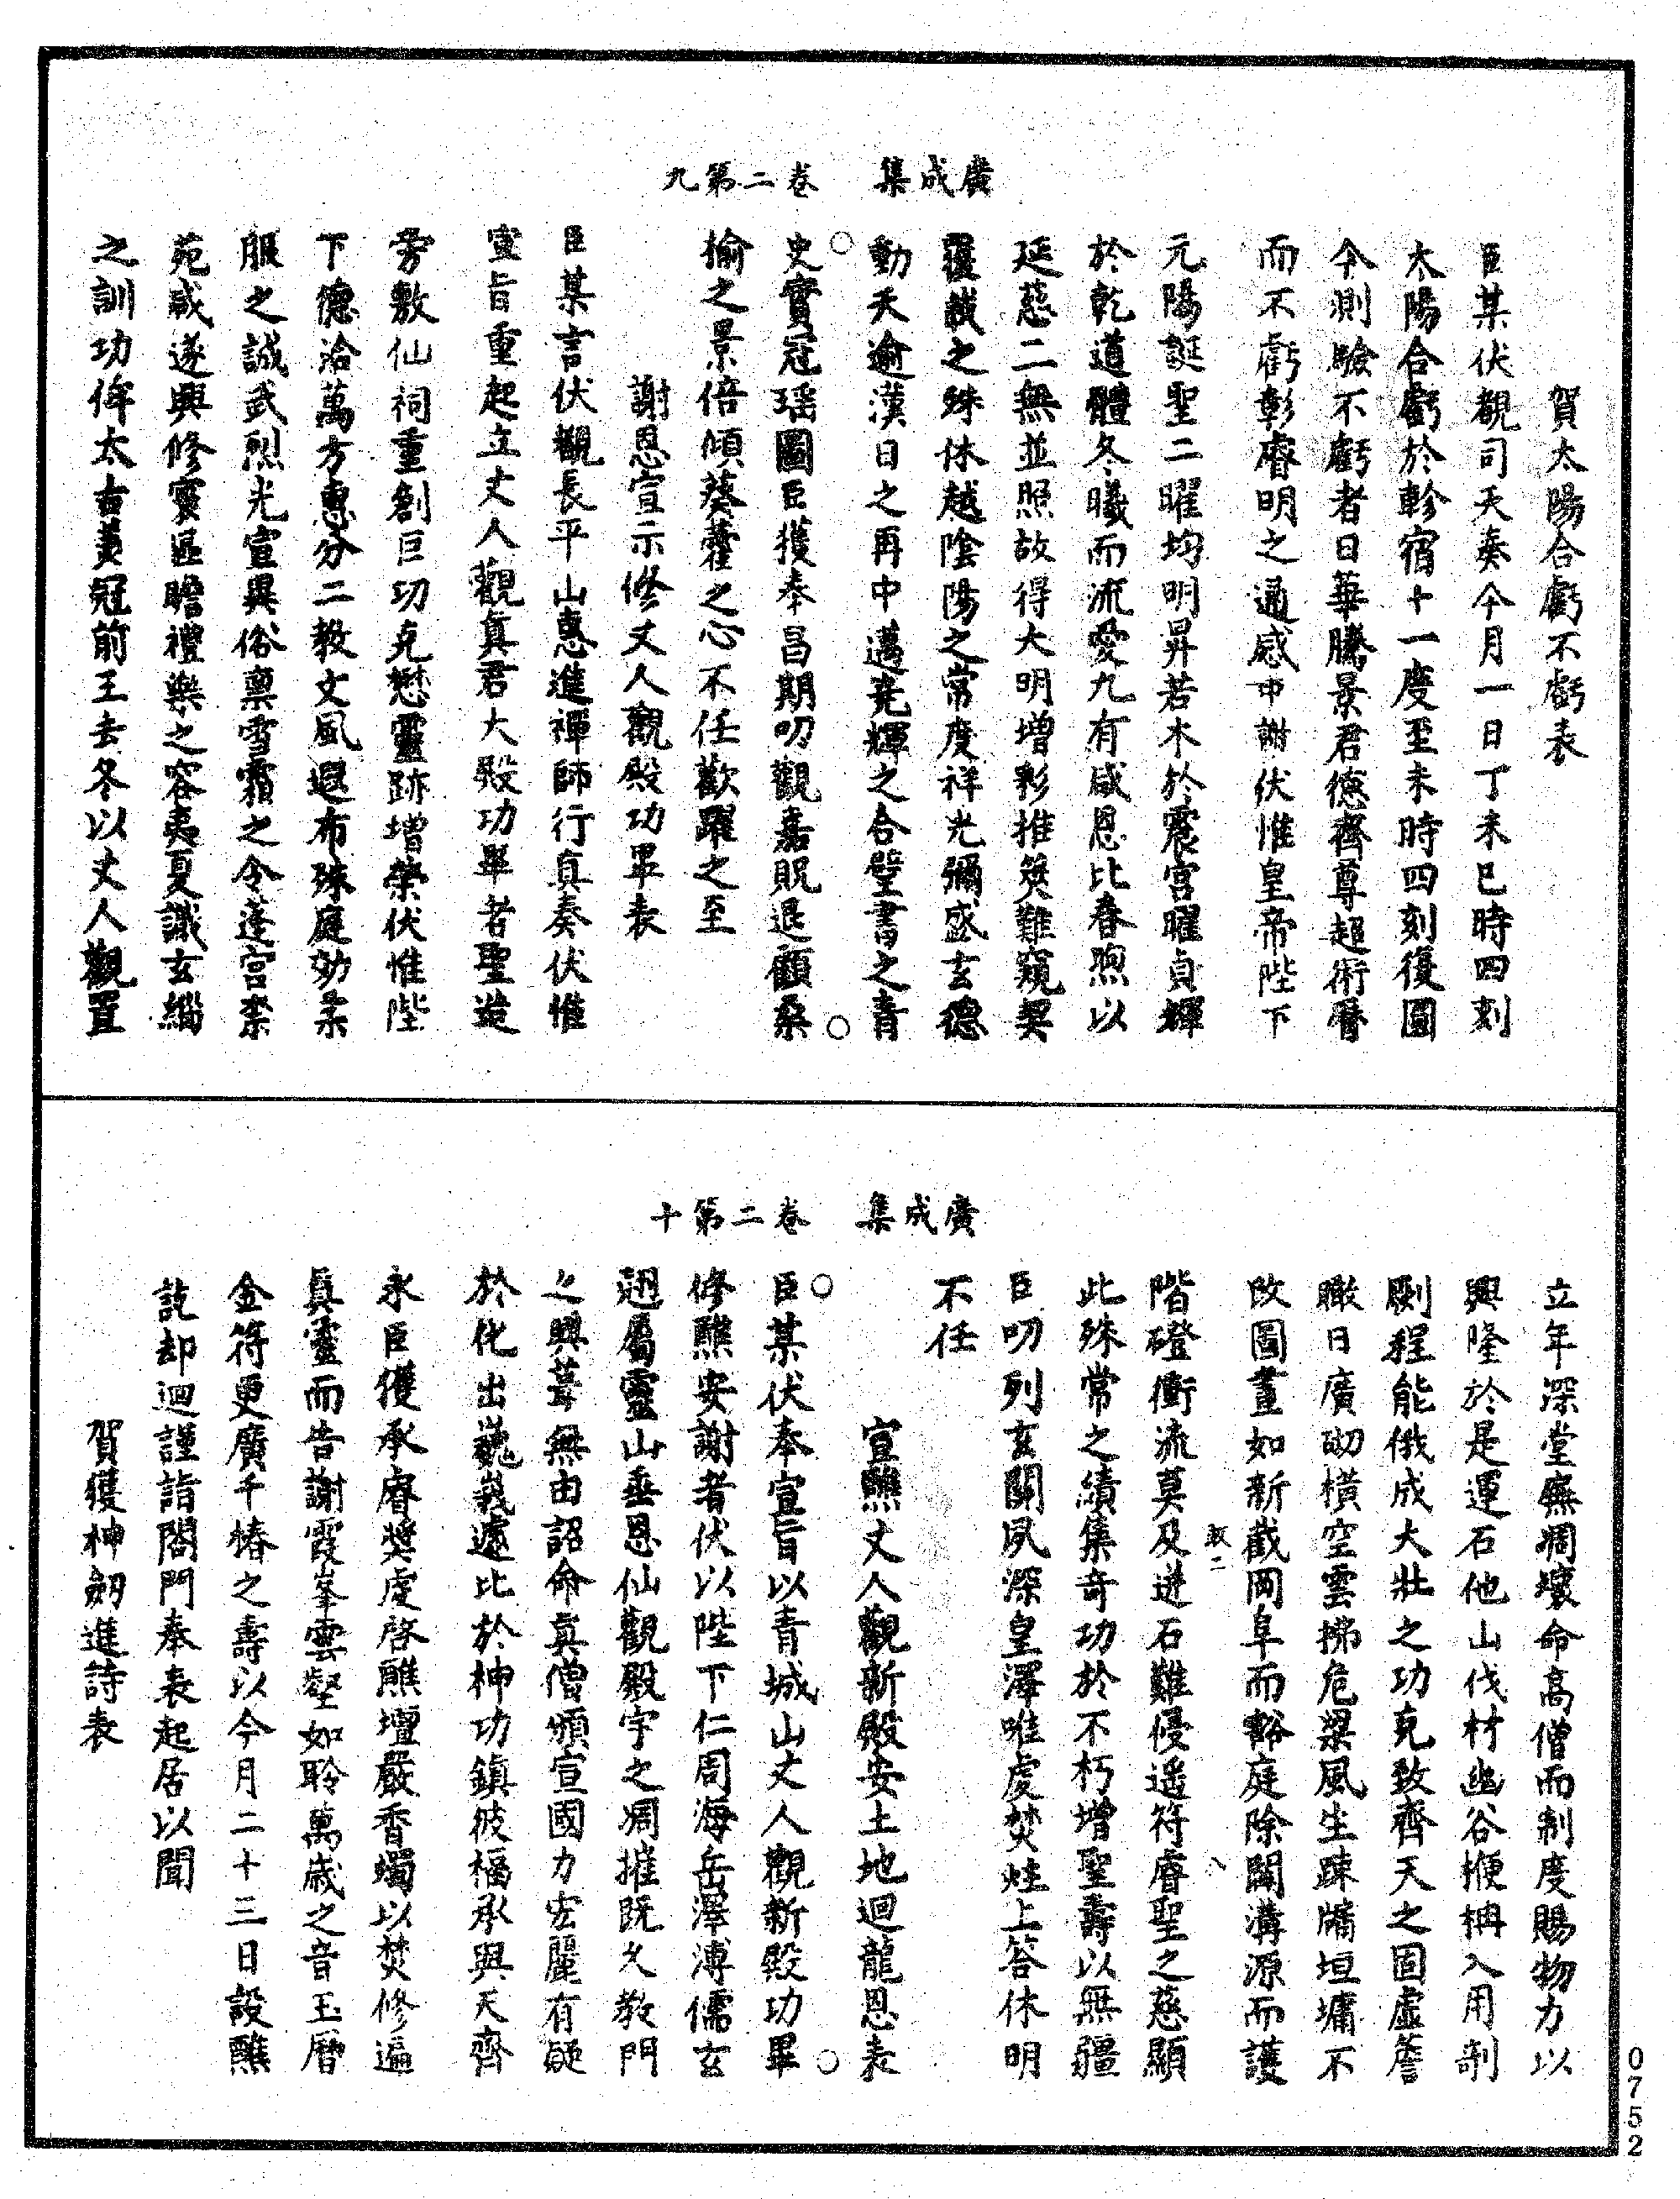 廣成集　卷二第九
賀太陽合虧不虧表
臣某伏覩司天奏今月一日丁未巳時四刻
太陽合虧於軫宿十一度至未時四刻復圓
今測驗不虧者日華騰景君德齊尊超術曆
而不虧彰睿明之通感中謝伏惟皇帝陛下
元陽誕聖二曜均明昇若木於震宮曜貞輝
於乾道體冬曦而流愛九有咸恩比春煦以
延慈二無並照故得大明增彩推筴難窺契
覆載之殊休越陰陽之常度祥光彌盛玄德
動天逾漢日之再中邁堯輝之合璧書之青
史實冠瑤圖臣獲奉昌期叨觀嘉貺退顧桑
榆之景倍傾葵藿之心不任歡躍之至
謝恩宣示修丈人觀殿功畢表
臣某言伏覩長平山惠進禪師行真奏伏惟
宣旨重起立丈人觀真君大殿功畢者聖造
旁敷仙祠重創巨功克懋靈跡增榮伏惟陛
下德洽萬方惠分二教文風遐布殊庭効柔
服之誠武烈光宣異俗稟雪霜之令蓬宮柰
苑咸遂興修寰區瞻禮樂之容夷夏識玄緇
之訓功侔太古美冠前王去冬以丈人觀置
廣成集　卷二第十
立年深堂廡凋壞命高僧而制度賜物力以
興隆於是運石他山伐材幽谷梗枏入用剞
劂程能俄成大壯之功克致齊天之固虛簷
瞰日廣砌橫空雲拂危梁風生踈牖垣墉不
改圖畫如新截岡阜而豁庭除闢溝源而護
階磴衝流莫及迸石難侵遥符睿聖之慈顯
此殊常之績集奇功於不朽增聖壽以無疆
臣叨列玄關夙深皇澤唯虔焚炷上答休明
不任
宣醮丈人觀新殿安土地迴龍恩表
臣某伏奉宣旨以青城山丈人觀新殿功畢
修醮安謝者伏以陛下仁周海岳澤溥儒玄
迴屬靈山垂恩仙觀殿宇之凋摧既久教門
之興葺無由詔命真僧頒宣國力宏麗有疑
於化出巍峩遽比於神功鎮彼福承與天齊
永臣獲承睿獎虔啓醮壇嚴香燭以焚修遍
真靈而告謝霞峯雲壑如聆萬歲之音玉曆
金符更廣千椿之壽以今月二十三日設醮
訖却迴謹詣閤門奉表起居以聞
賀獲神劒進詩表
0752